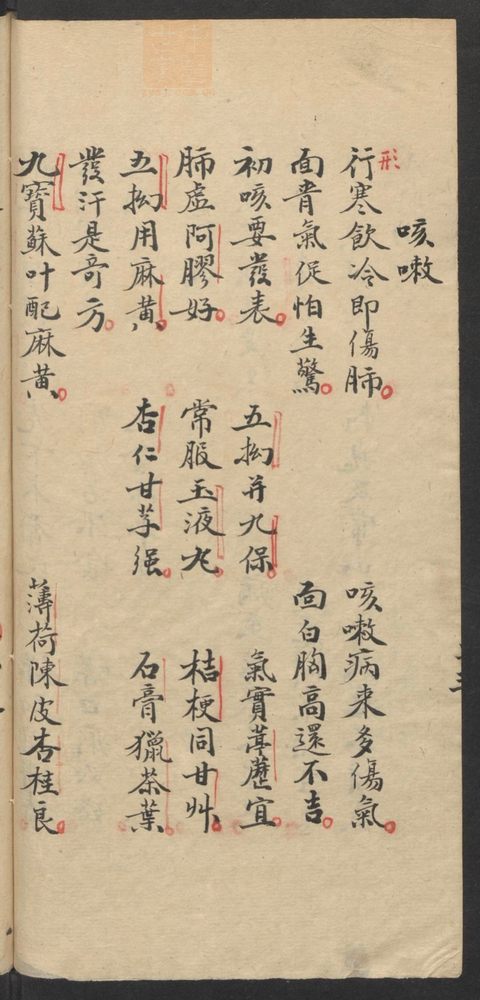 咳嗽
形
行寒飲冷即傷肺 咳嗽病来多傷氣
面青氣促怕生驚 面白胸高還不吉
初咳要發表 五拗并九保 氣實葶藶宜
肺虛阿膠好 常服玉液丸 桔梗同甘艸
五拗用麻黄 杏仁甘草强 石膏獵茶葉
發汗是奇方
九寶蘇叶配麻黄 薄荷陳皮杏桂良